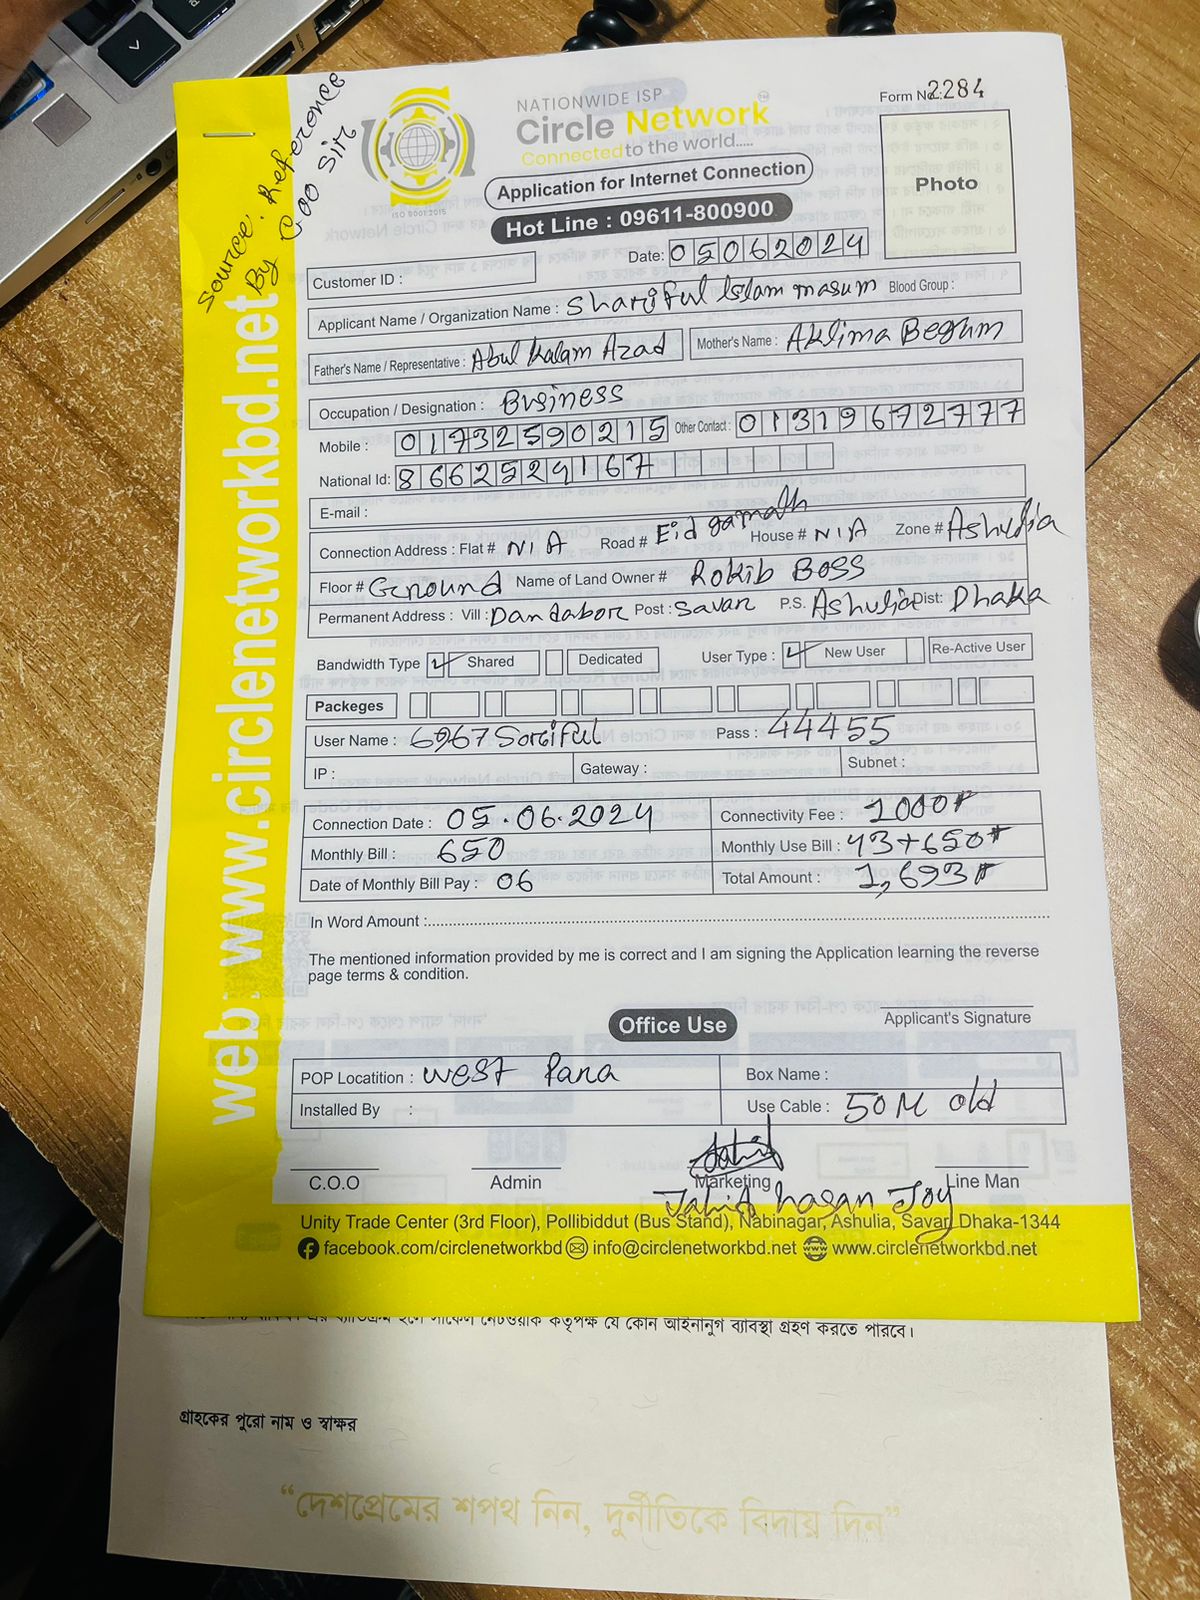 Source. Reference
By COO Sir
NATIONWIDE ISP
Circle Network™
Connected to the world.....
ISO 9001:2015
Application for Internet Connection
Hot Line : 09611-800900
Form No.: 2284
Photo
Date: 05062024
Customer ID :
Applicant Name / Organization Name : Shariful Islam masum Blood Group :
Father's Name / Representative : Abul Kalam Azad Mother's Name : Aklima Begum
Occupation / Designation : Business
Mobile : 01732590215 Other Contact : 01319672777
National Id: 8662529167
E-mail :
Connection Address : Flat # N/A Road # Eid gamath House # N/A Zone # Ashulia
Floor # Ground Name of Land Owner # Rokib Boss
Permanent Address : Vill : Dandabor Post : Savar P.S. Ashulia Dist: Dhaka
Bandwidth Type Shared Dedicated User Type : New User Re-Active User
Packeges
User Name : 6967 Soriful Pass : 44455
IP : Gateway : Subnet :
Connection Date : 05.06.2024 Connectivity Fee : 1000
Monthly Bill : 650 Monthly Use Bill : 43+650
Date of Monthly Bill Pay : 06 Total Amount : 1,693
In Word Amount :
The mentioned information provided by me is correct and I am signing the Application learning the reverse
page terms & condition.
Applicant's Signature
Office Use
POP Locatition : West Para Box Name :
Installed By : Use Cable : 50M old
Jahid
C.O.O Admin Marketing Line Man
Jahid hasan Joy
Unity Trade Center (3rd Floor), Pollibiddut (Bus Stand), Nabinagar, Ashulia, Savar, Dhaka-1344
facebook.com/circlenetworkbd info@circlenetworkbd.net www.circlenetworkbd.net
web: www.circlenetworkbd.net
কর্তৃপক্ষ যে কোন আইনানুগ ব্যবস্থা গ্রহণ করতে পারবে।
গ্রাহকের পুরো নাম ও স্বাক্ষর
“দেশপ্রেমের শপথ নিন, দুর্নীতিকে বিদায় দিন”